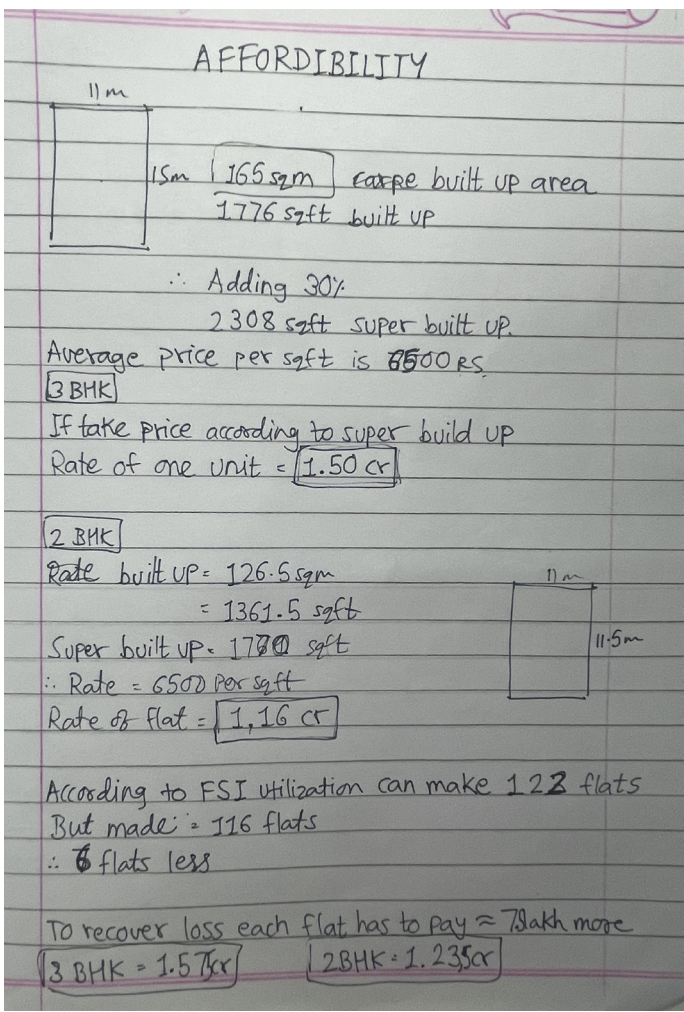 AFFORDIBILITY
11m
15m 165 sqm built up area
1776 sqft built up
∴ Adding 30%
2308 sqft super built up.
Average price per sqft is 6500 RS.
3 BHK
If take price according to super build up
Rate of one unit = 1.50 cr
2 BHK
Rate built up = 126.5 sqm
11m
= 1361.5 sqft
11.5m
Super built up = sqft
∴ Rate = 6500 Per sqft
Rate of flat = 1,16 cr
According to FSI utilization can make 122 flats
But made = 116 flats
∴ 6 flats less
To recover loss each flat has to pay ≈ more
3 BHK = 1.575cr 2BHK = 1.235cr